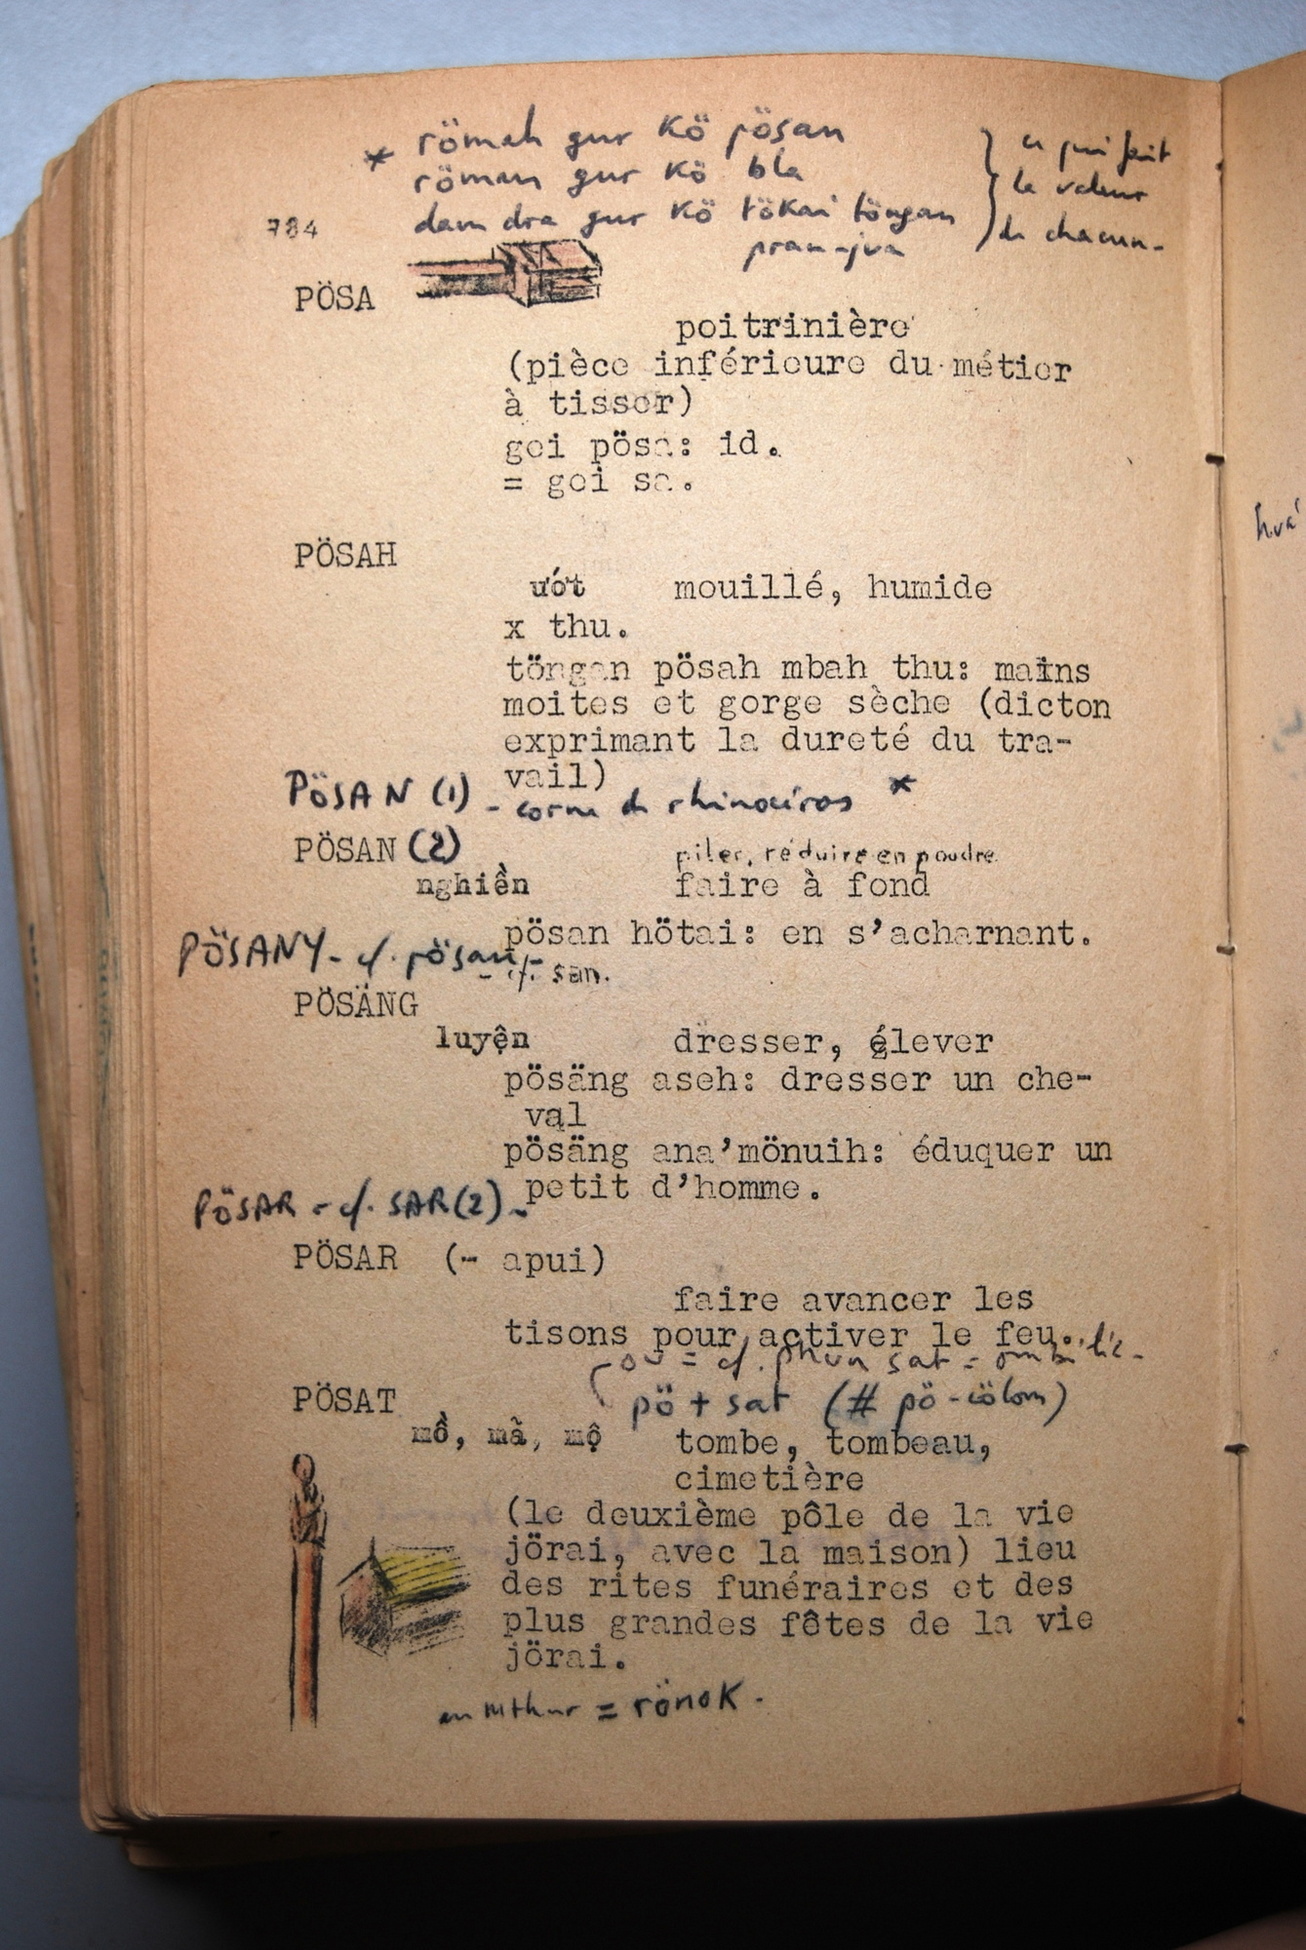 * römah gur kö pösan
röman gur kö bla
dam dra gur kö tökai töngan
pran-jua
} ce qui fait
la valeur
de chacun-
784
PÖSA
poitrinière
(pièce inférieure du métier
à tisser)
gei pösa: id.
= gei sa.
PÖSAH
ướt mouillé, humide
x thu.
töngan pösah mbah thu: mains
moites et gorge sèche (dicton
exprimant la dureté du tra-
vail)
PÖSAN (1) - corne de rhinocéros *
PÖSAN (2) piler, réduire en poudre
nghiền faire à fond
pösan hötai: en s'acharnant.
PÖSANY - cf. pösan -
- cf. san.
PÖSÄNG
luyện dresser, élever
pösäng aseh: dresser un che-
val
pösäng ana'mönuih: éduquer un
petit d'homme.
PÖSAR - cf. SAR(2) -
PÖSAR (- apui)
faire avancer les
tisons pour activer le feu.
ou = cf. phun sat =
PÖSAT pö + sat (# pö-cölom)
mồ, mả, mộ tombe, tombeau,
cimetière
(le deuxième pôle de la vie
jörai, avec la maison) lieu
des rites funéraires et des
plus grandes fêtes de la vie
jörai.
en Mthur = rönok.